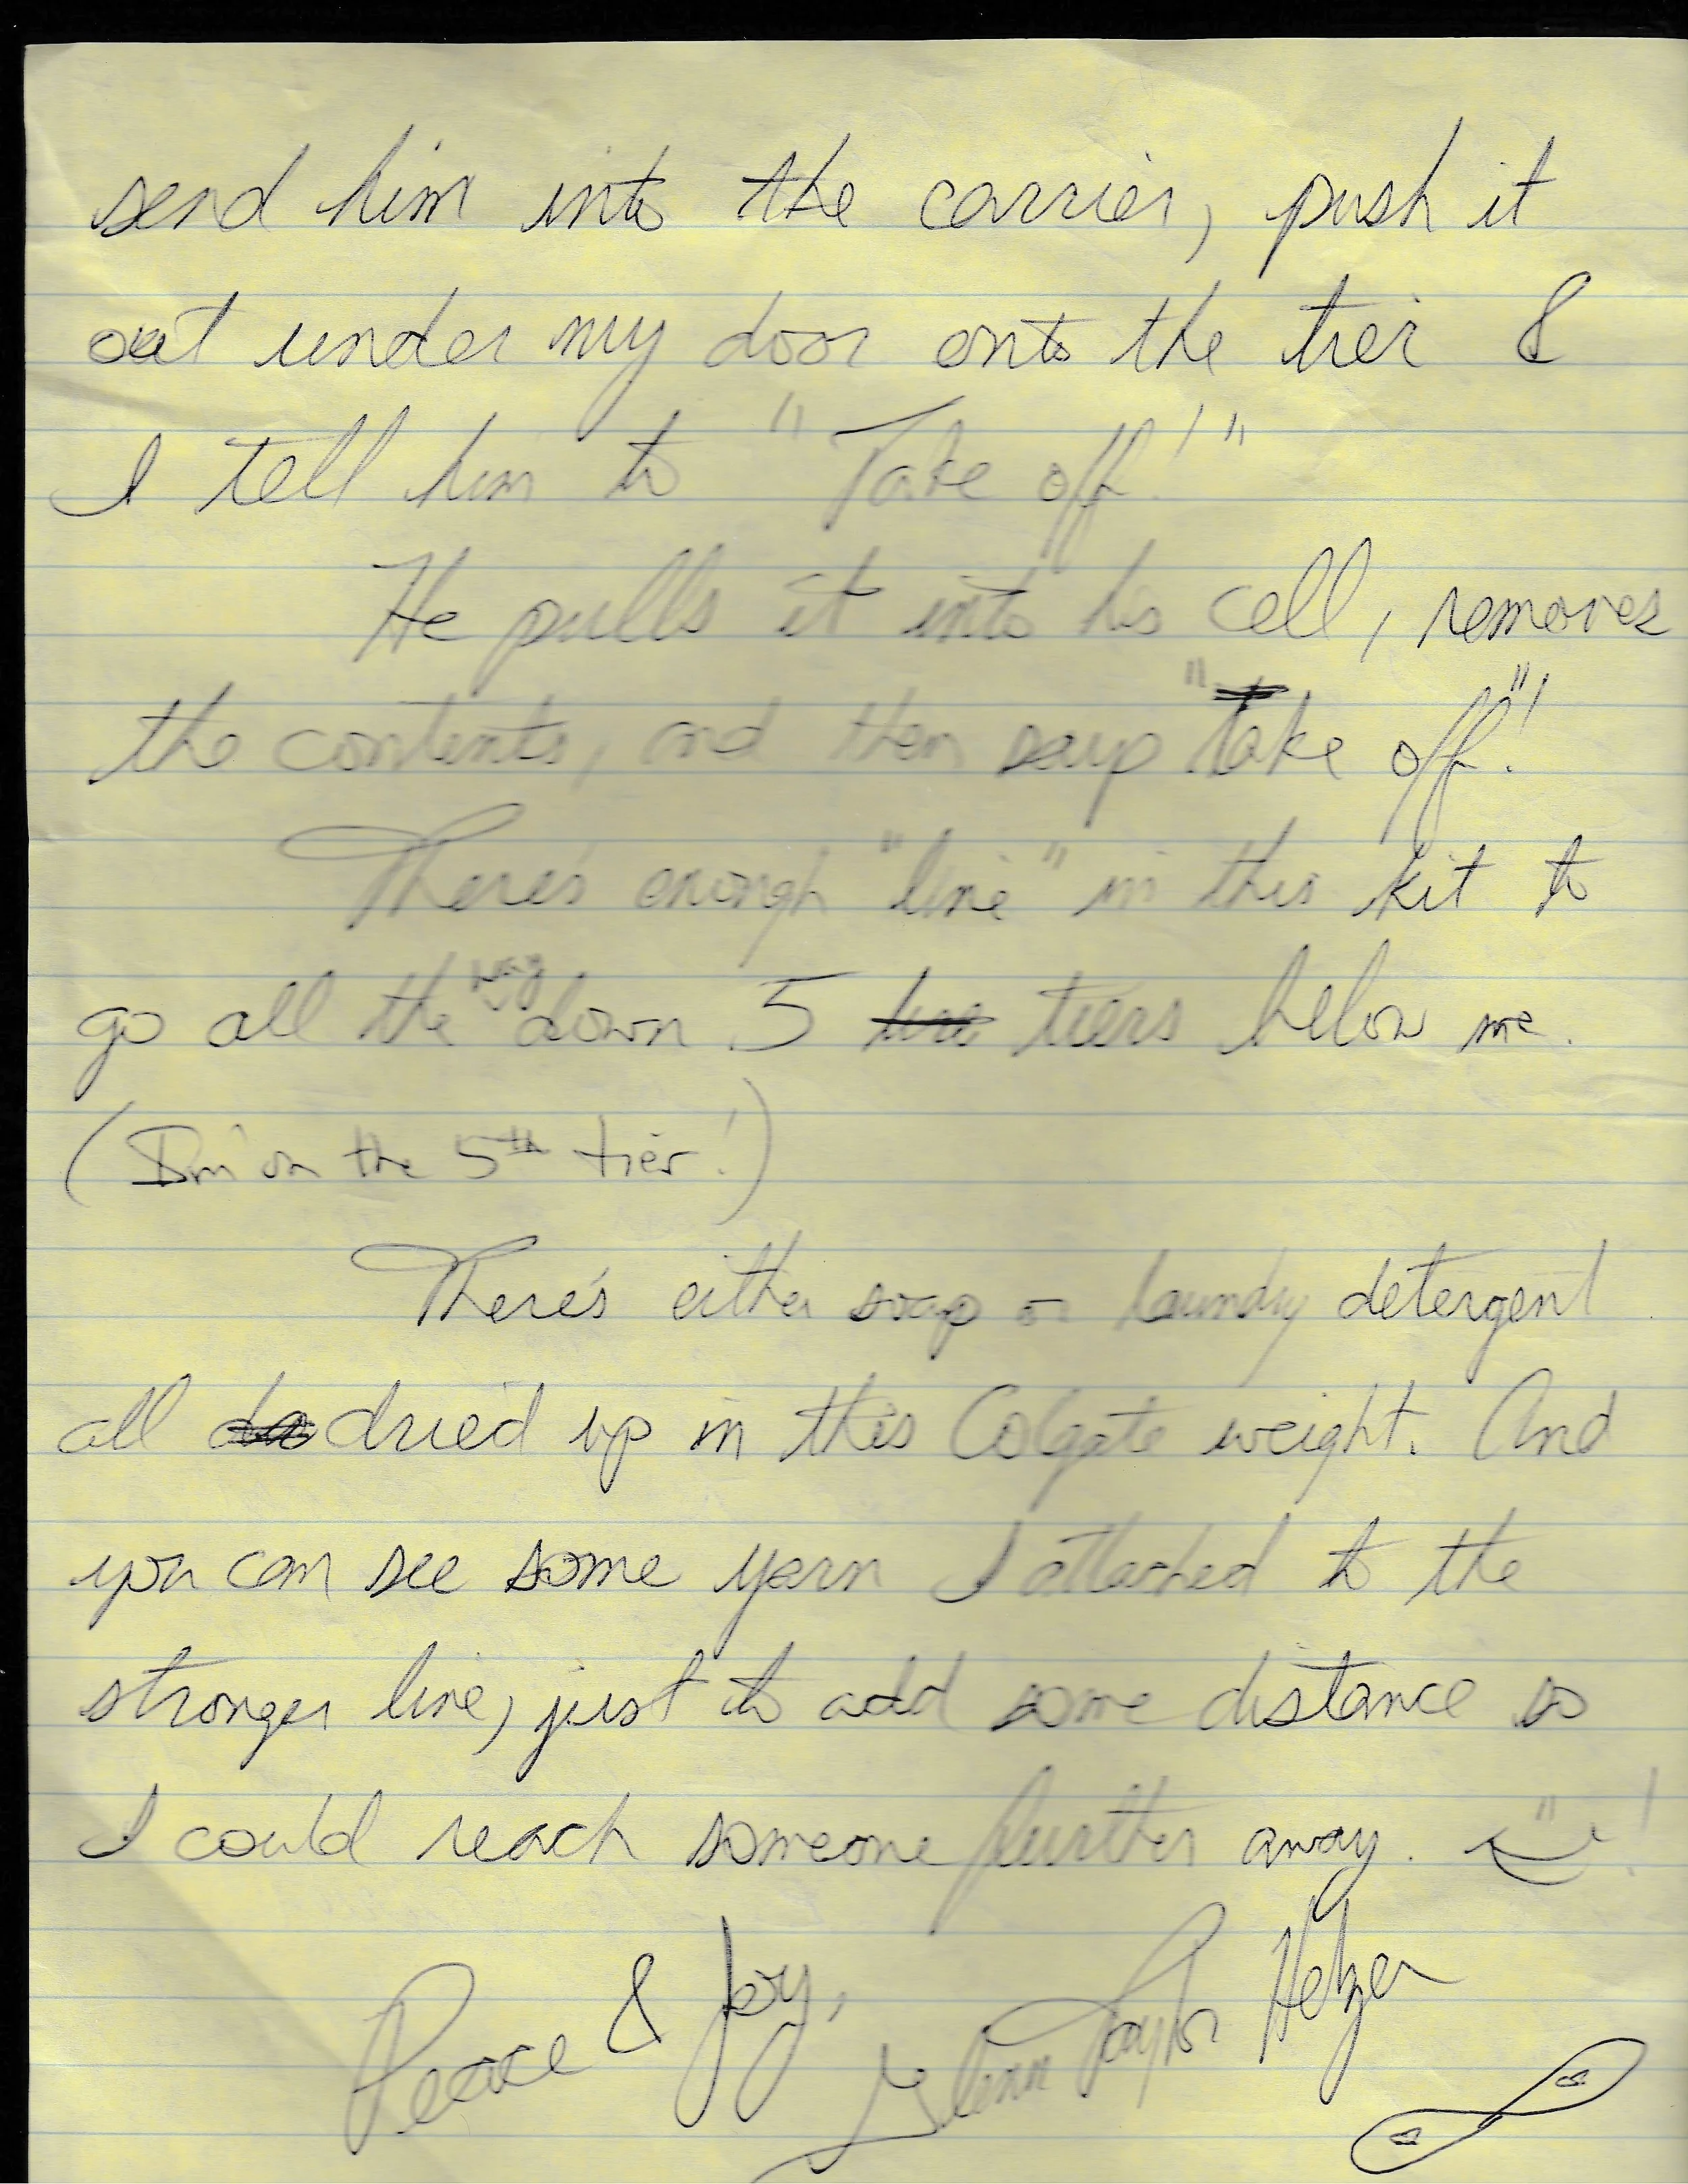 send him into the carrier, push it
out under my door onto the tier &
I tell him to "Take off!"
He pulls it into his cell, removes
the contents, and then says "Take off"!
There's enough "line" in this kit to
go all the way down 5 tiers below me.
(I'm on the 5th tier!)
There's either soap or laundry detergent
all dried up in this Colgate weight. And
you can see some yarn I attached to the
stronger line, just to add some distance so
I could reach someone further away. !
Peace & Joy,
Glenn Taylor Helzer